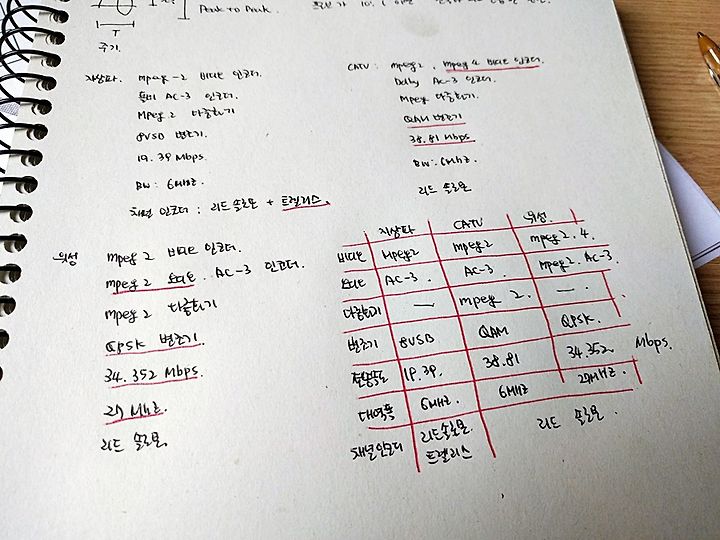 T
Peak to Peak.
주기.
지상파. mpeg-2 비디오 인코더.
돌비 AC-3 인코더.
MPEG 2 다중화기
8VSB 변조기.
19.39 Mbps.
BW : 6MHz.
채널 인코더 : 리드솔로몬 + 트렐리스.
CATV : mpeg2, mpeg4 비디오 인코더.
Dolby AC-3 인코더.
Mpeg 다중화기.
QAM 변조기
38.81 Mbps
BW : 6MHz.
리드 솔로몬
위성 mpeg 2 비디오 인코더.
mpeg 2 오디오. AC-3 인코더.
mpeg 2 다중화기
QPSK 변조기.
34.352 Mbps.
27 MHz.
리드 솔로몬.
지상파 CATV 위성.
비디오 Mpeg2 mpeg2 mpeg2.4.
오디오 AC-3. AC-3. Mpeg2. AC-3.
다중화기 — mpeg 2. —.
변조기 8VSB QAM QPSK.
전송속도 19.39. 38.81 34.352 Mbps.
대역폭 6MHz. 6MHz 27MHz.
채널인코더 리드솔로몬. 트렐리스 리드 솔로몬.